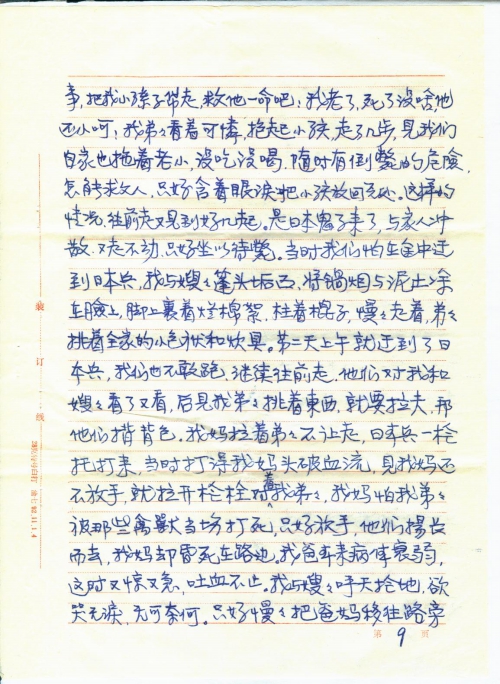 事,把我小孩子带走,救他一命吧!我老了,死了没啥,他
还小呵!我弟々看着可怜,抱起小孩,走了几步,见我们
自家也拖着老小,没吃没喝,随时有倒毙的危险,
怎能求人,只好含着眼泪把小孩放回无处。这样的
情况,往前走又见到好几起。是日本鬼子来了,与家人冲
散,又走不动,只好坐以待毙。当时我们怕在途中迂
到日本兵,我与嫂々蓬头垢面,将锅烟与泥土涂
在脸上,脚上裹着烂棉絮,柱着棍子,慢々走着,弟々
挑着全家的小包袱和炊具。第二天上午就迂到了日
本兵,我们也不敢跑,继续往前走,他们对我和
嫂々看了又看,后见我弟々挑着东西,就要拉夫,帮
他们揹背包。我妈拉着弟々不让走,日本兵一枪
托打来,当时打得我妈头破血流,见我妈还
不放手,就拉开枪栓对着我弟々,我妈怕我弟々
被那些禽兽当场打死,只好放手,他们扬长
而去,我妈却昏死在路边。我爸年来病体衰弱,
这时又惊又急,吐血不止。我与嫂々呼天抢地,欲
哭无泪,无可奈何。只好慢々把爸妈移往路旁
装订线
第9页